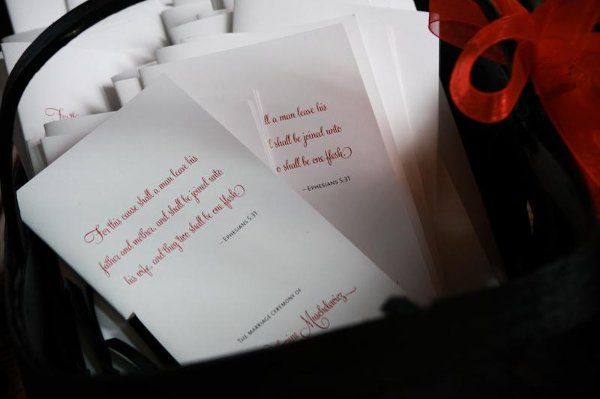 For this cause shall a man leave his
father and mother, and shall be joined unto
his wife, and they two shall be one flesh
~EPHESIANS 5:31
THE MARRIAGE CEREMONY OF
ll a man leave his
l shall be joined unto
o shall be one flesh
~EPHESIANS 5:31
For